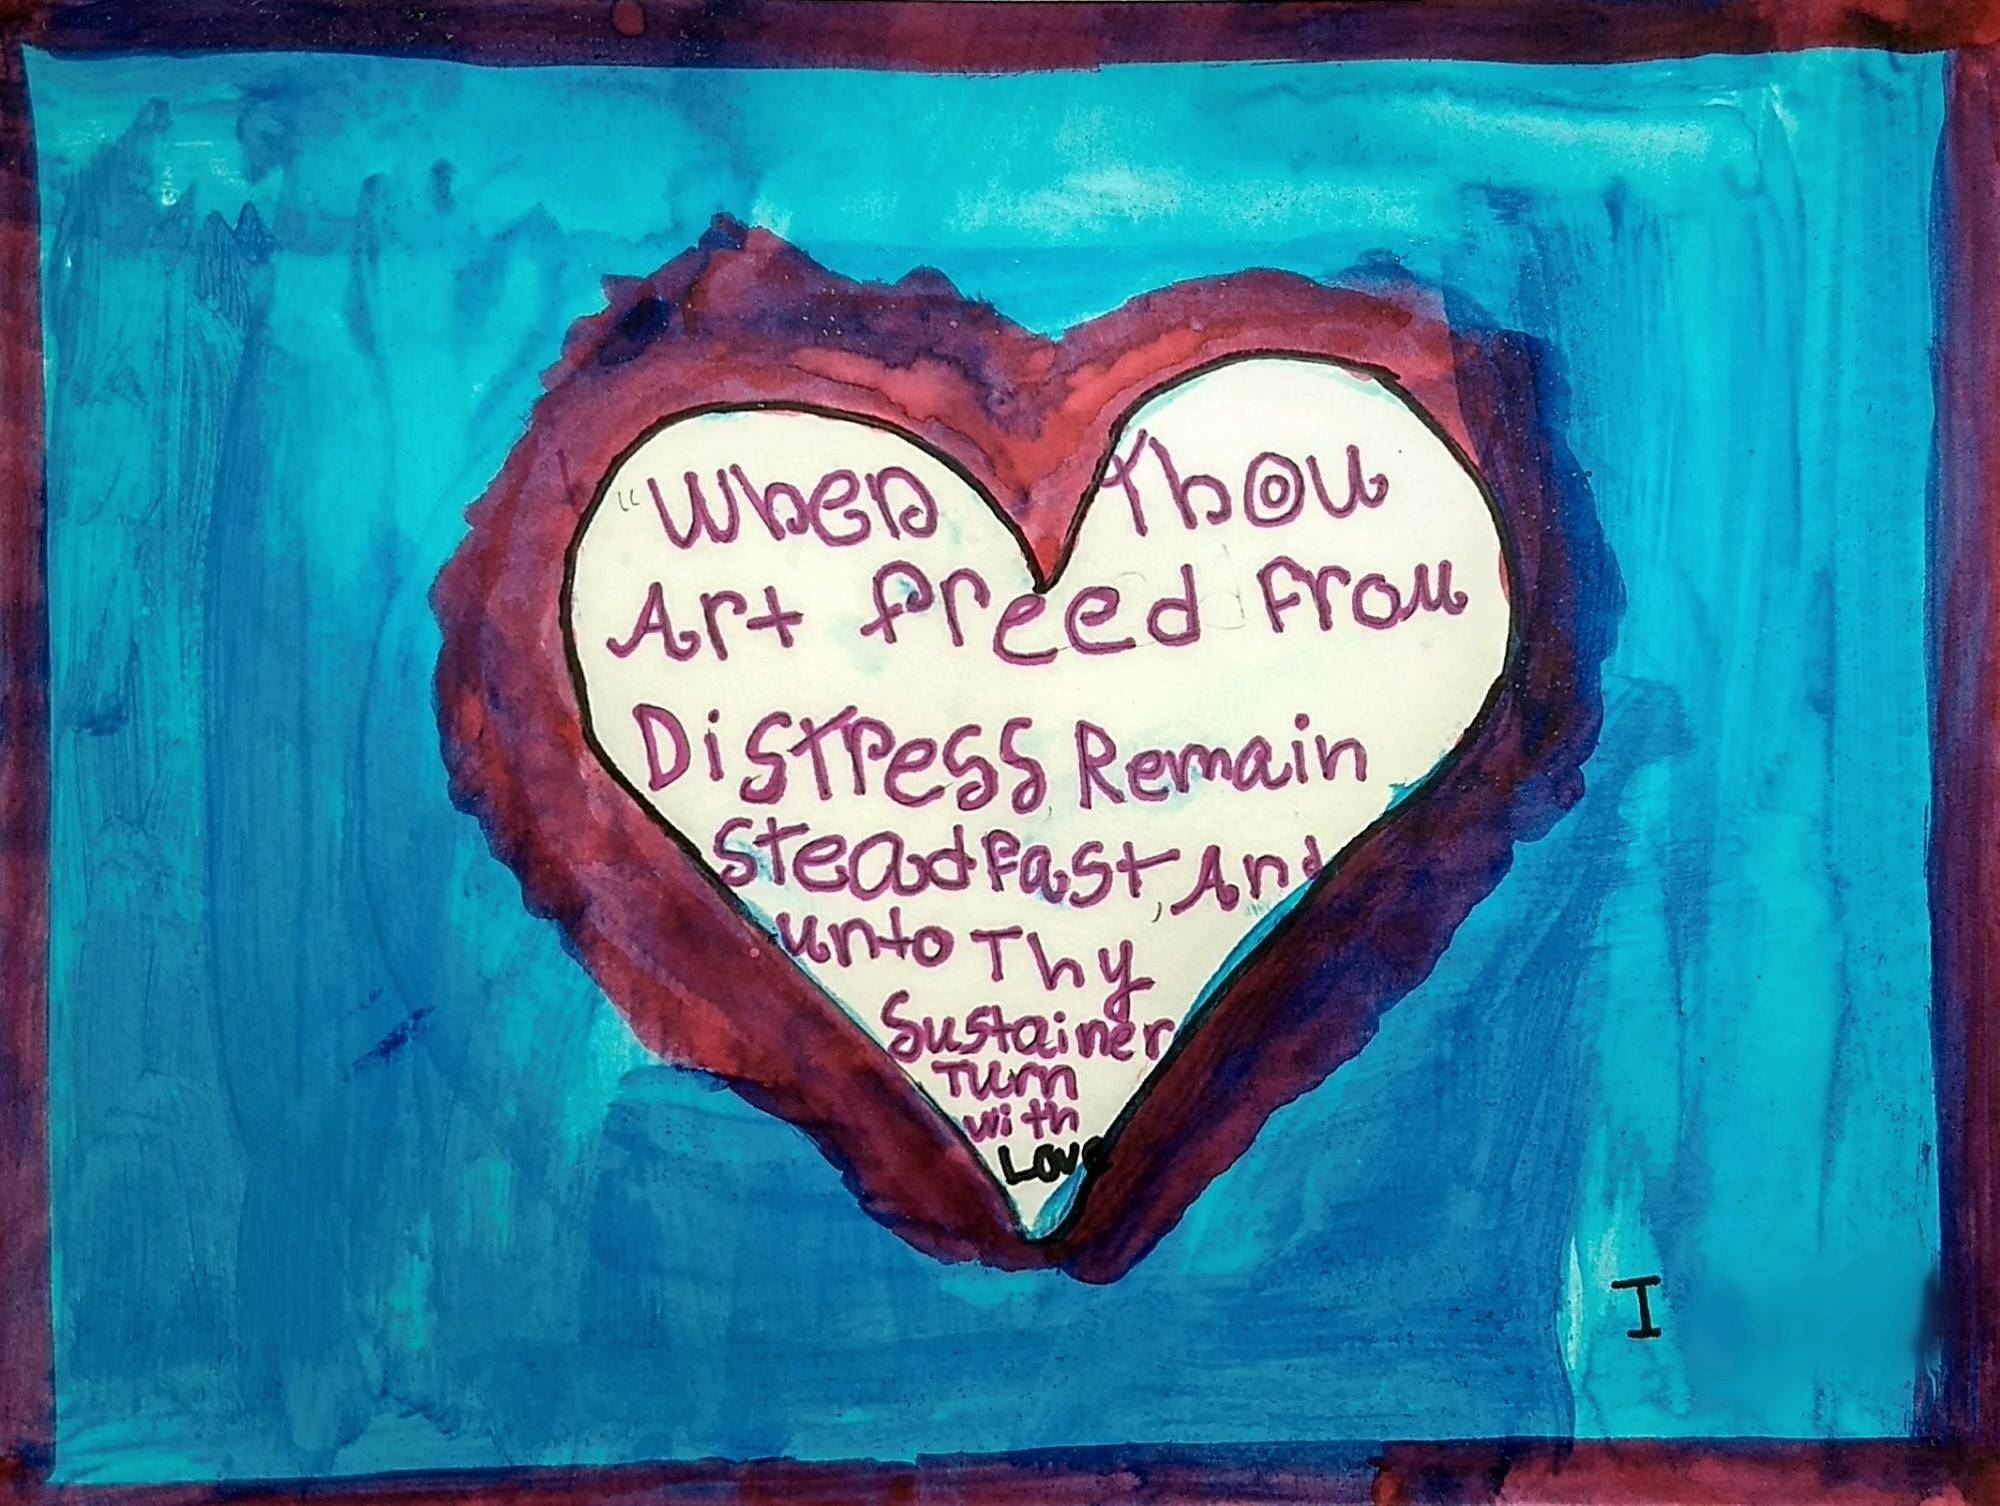 "When Thou
Art freed From
Distress Remain
Steadfast, And
unto Thy
Sustainer
Turn
with
Love
I